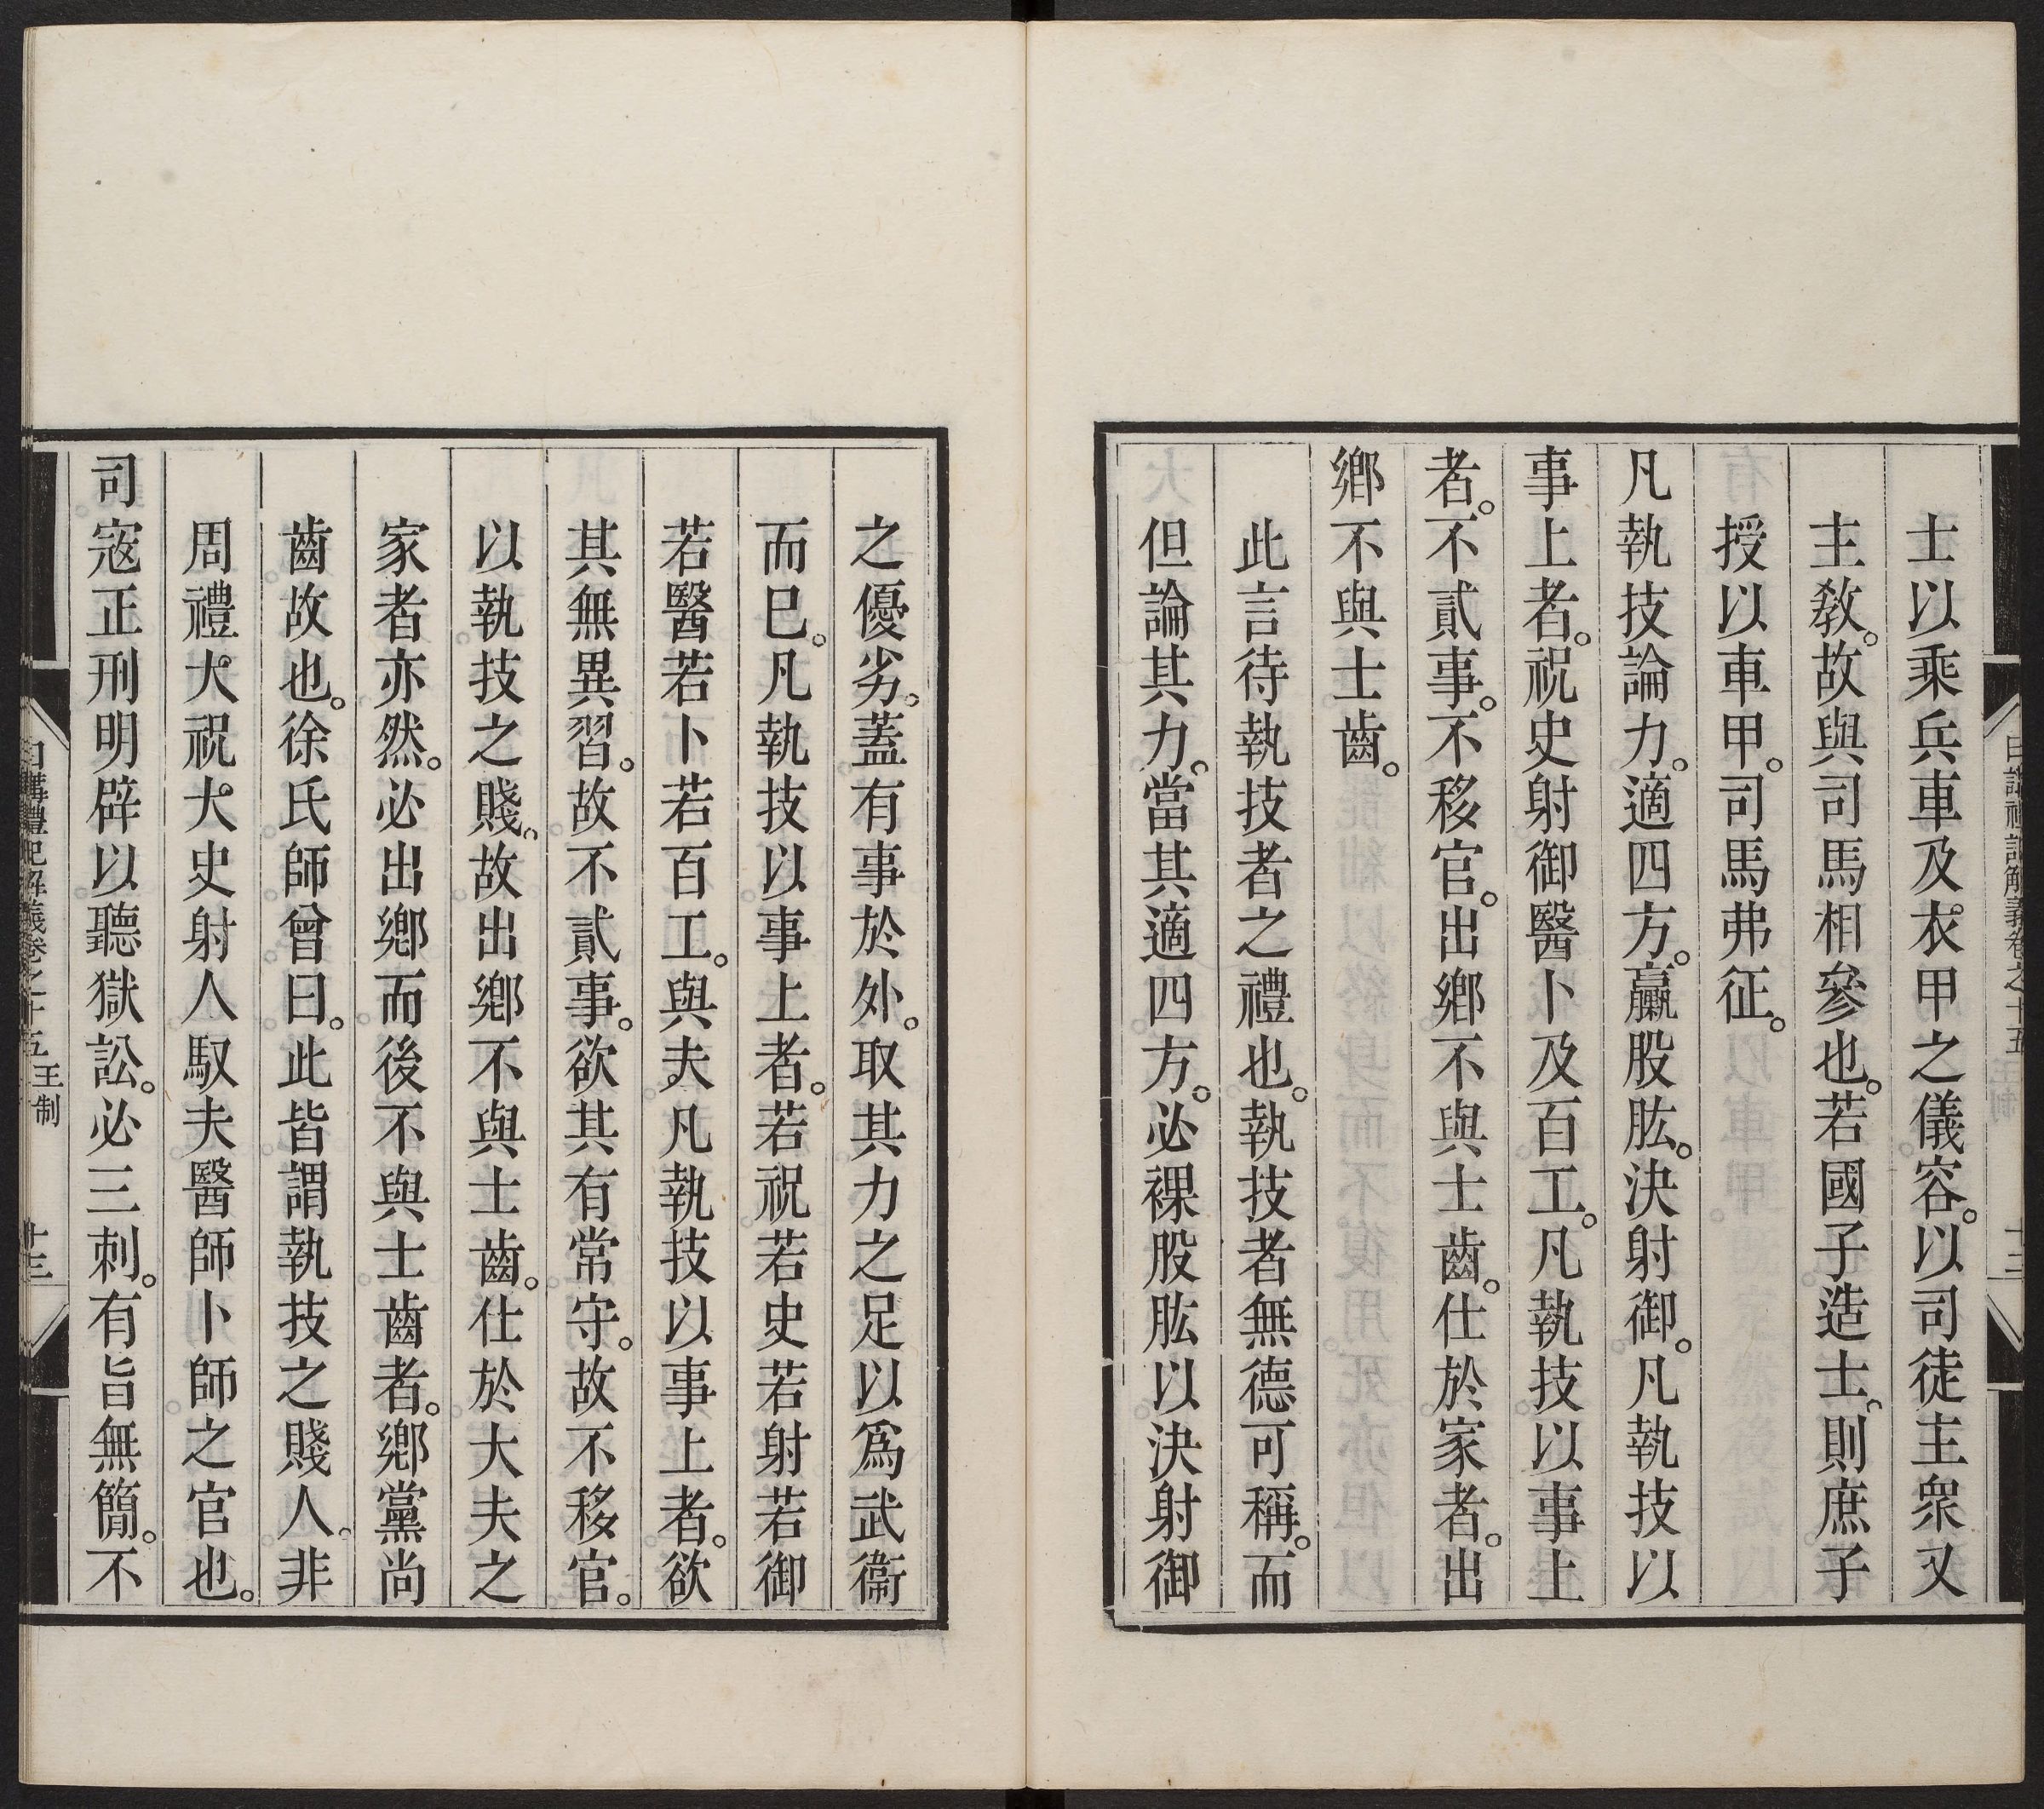 士以乘兵車及衣甲之儀容。以司徒主眾又
主敎。故與司馬相參也。若國子造士。則庶子
授以車甲。司馬弗征。
凡執技論力。適四方。臝股肱。決射御。凡執技以
事上者。祝史射御醫卜及百工。凡執技以事上
者。不貳事。不移官。出鄉不與士齒。仕於家者。出
鄉不與士齒。
此言待執技者之禮也。執技者無德可稱。而
但論其力。當其適四方。必裸股肱以決射御
之優劣。蓋有事於外。取其力之足以爲武衞
而已。凡執技以事上者。若祝若史若射若御
若醫若卜若百工。與夫凡執技以事上者。欲
其無異習。故不貳事。欲其有常守。故不移官。
以執技之賤。故出鄉不與士齒。仕於大夫之
家者亦然。必出鄉而後不與士齒者。鄉黨尚
齒故也。徐氏師曾曰。此皆謂執技之賤人。非
周禮大祝大史射人馭夫醫師卜師之官也。
司寇正刑明辟以聽獄訟。必三刺。有旨無簡。不
日講禮記解義卷之十五 王制 十三